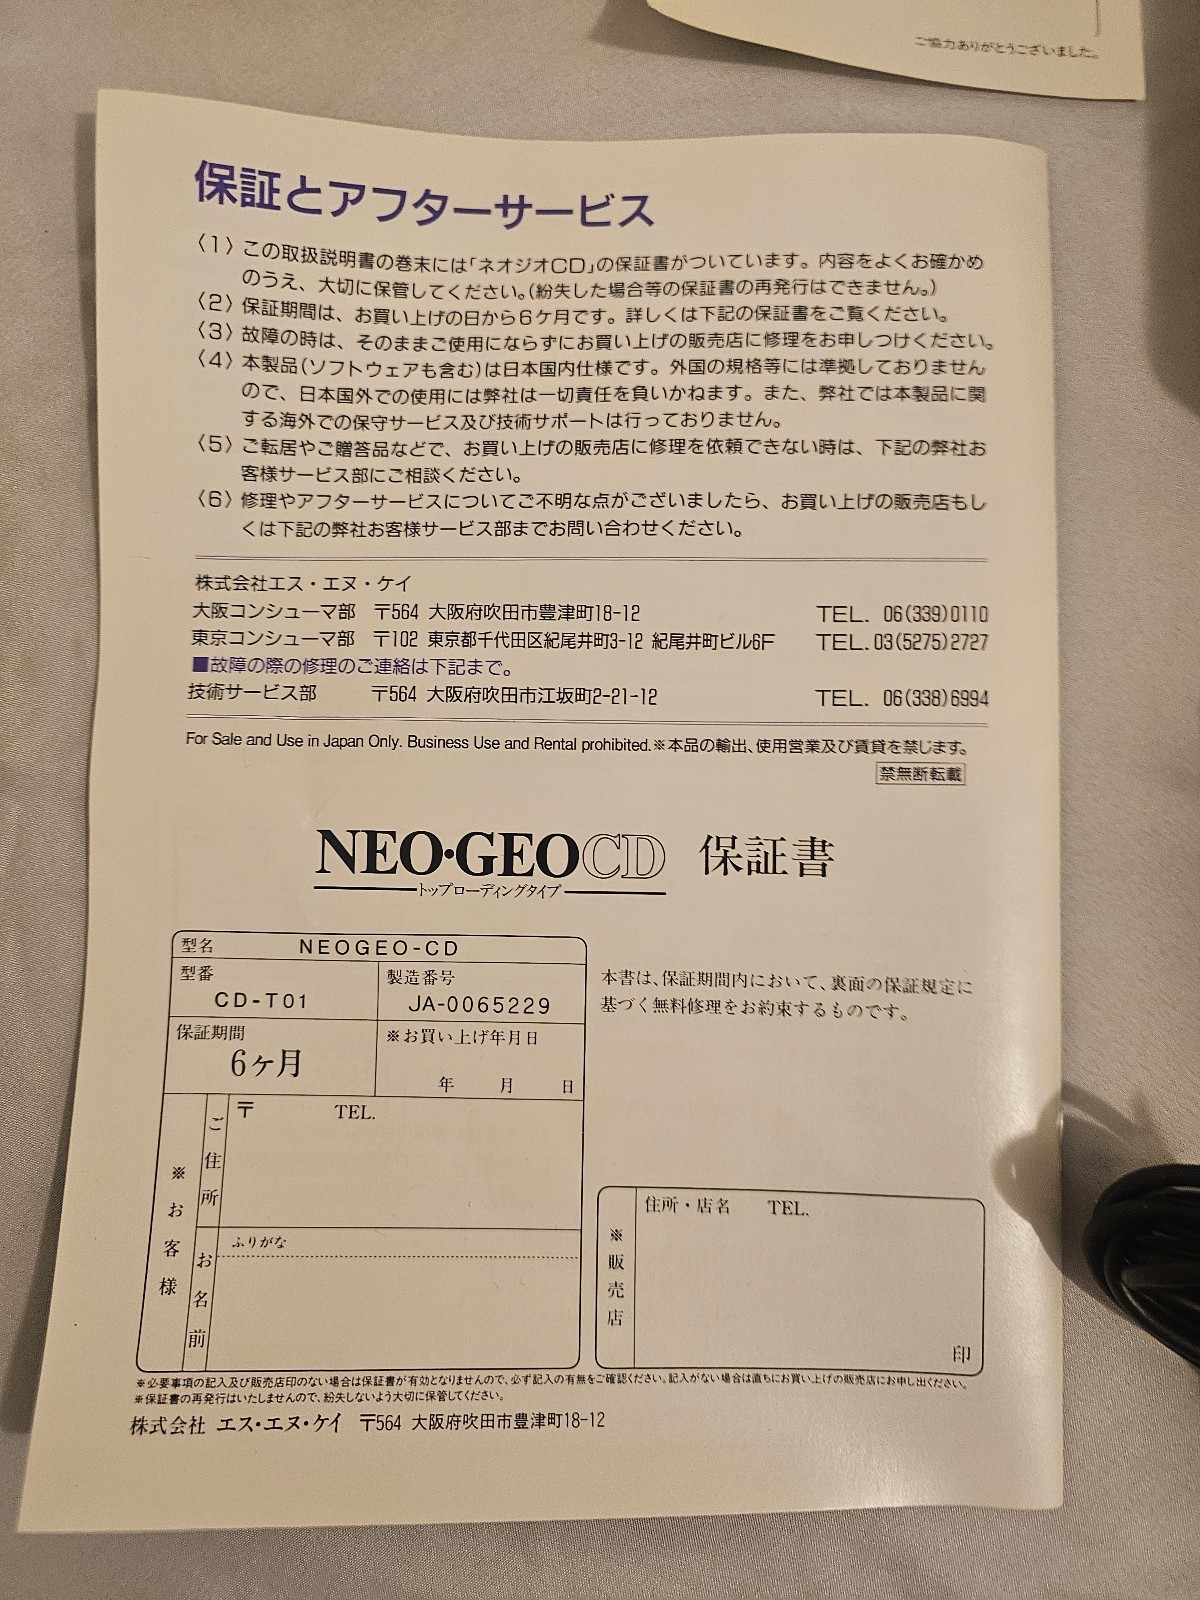 ご協力ありがとうございました。
保証とアフターサービス
〈1〉この取扱説明書の巻末には「ネオジオCD」の保証書がついています。内容をよくお確かめ
のうえ、大切に保管してください。(紛失した場合等の保証書の再発行はできません。)
〈2〉保証期間は、お買い上げの日から6ケ月です。詳しくは下記の保証書をご覧ください。
〈3〉故障の時は、そのままご使用にならずにお買い上げの販売店に修理をお申しつけください。
〈4〉本製品(ソフトウェアも含む)は日本国内仕様です。外国の規格等には準拠しておりません
ので、日本国外での使用には弊社は一切責任を負いかねます。また、弊社では本製品に関
する海外での保守サービス及び技術サポートは行っておりません。
〈5〉ご転居やご贈答品などで、お買い上げの販売店に修理を依頼できない時は、下記の弊社お
客様サービス部にご相談ください。
〈6〉修理やアフターサービスについてご不明な点がございましたら、お買い上げの販売店もし
くは下記の弊社お客様サービス部までお問い合わせください。
株式会社エス・エヌ・ケイ
大阪コンシューマ部 〒564 大阪府吹田市豊津町18-12 TEL. 06(339)0110
東京コンシューマ部 〒102 東京都千代田区紀尾井町3-12 紀尾井町ビル6F TEL. 03(5275)2727
■故障の際の修理のご連絡は下記まで。
技術サービス部 〒564 大阪府吹田市江坂町2-21-12 TEL. 06(338)6994
For Sale and Use in Japan Only. Business Use and Rental prohibited.※本品の輸出、使用営業及び賃貸を禁じます。
禁無断転載
NEO・GEO CD 保証書
トップローディングタイプ
型名 NEOGEO-CD
型番 製造番号
CD-T01 JA-0065229
保証期間 ※お買い上げ年月日
6ヶ月
年 月 日
本書は、保証期間内において、裏面の保証規定に
基づく無料修理をお約束するものです。
※お客様
ご住所
〒 TEL.
お名前
ふりがな
※販売店
住所・店名 TEL.
印
※必要事項の記入及び販売店印のない場合は保証書が有効となりませんので、必ず記入の有無をご確認ください。記入がない場合は直ちにお買い上げの販売店にお申し出ください。
※保証書の再発行はいたしませんので、紛失しないよう大切に保管してください。
株式会社 エス・エヌ・ケイ 〒564 大阪府吹田市豊津町18-12